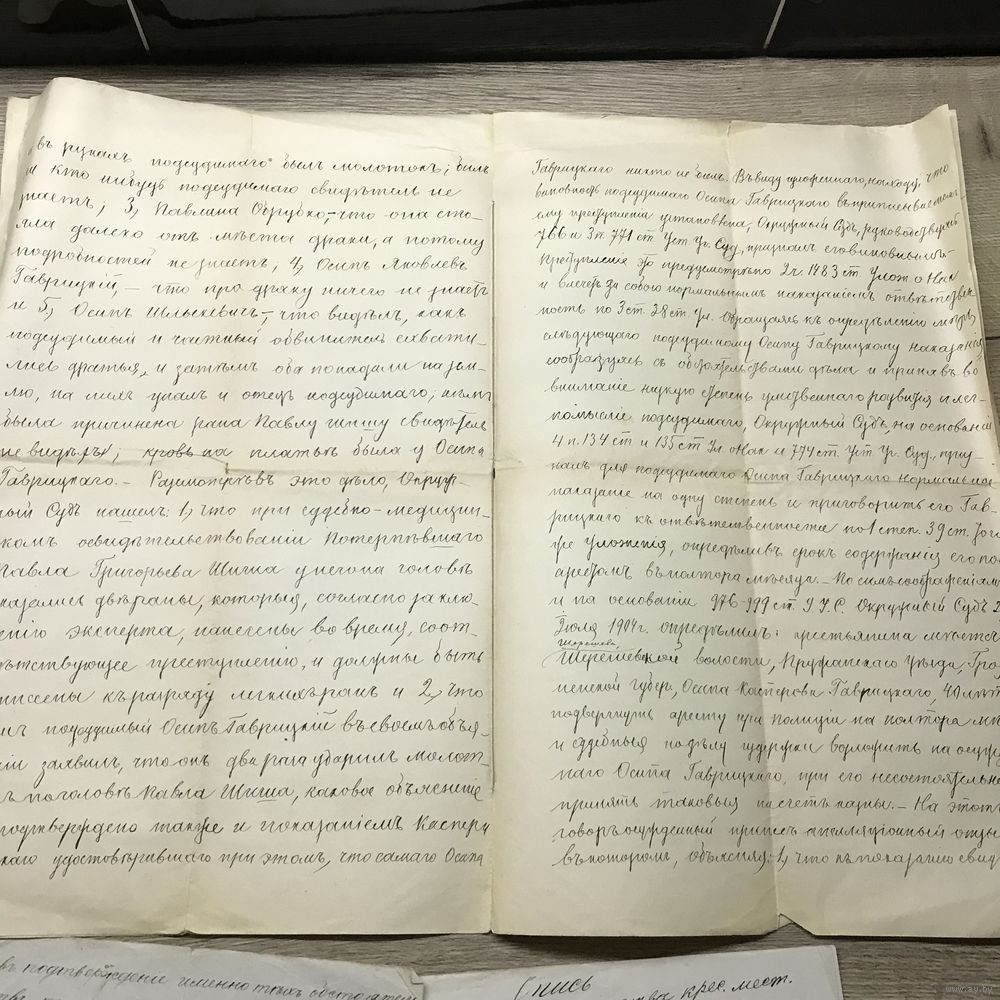 въ рукахъ подсудимаго былъ молотокъ; билъ
кто нибудь подсудимаго свидѣтель не
знаетъ; 3, Павлина Обрубко, – что она сто-
яла далеко отъ мѣста драки, а потому
подробностей не знаетъ; 4, Осипъ Яковлевъ
Гаврицкій, – что про драку ничего не знаетъ
и 5, Осипъ Шлыкевичъ, – что видѣлъ, какъ
подсудимый и частный обвинитель схвати-
лись драться, и затѣмъ оба попадали на зем-
лю, на нихъ упалъ и отецъ подсудимаго; кѣмъ
была причинена рана Павлу Шишу свидѣтель
не видѣлъ; кровь на платьѣ была у Осипа
Гаврицкаго. – Разсмотрѣвъ это дѣло, Окруж-
ный Судъ нашелъ: 1, что при судебно-медицин-
скомъ освидѣтельствованіи потерпѣвшаго
Павла Григорьева Шиша у него на головѣ
оказались двѣ раны, которыя, согласно заклю-
ченію эксперта, нанесены во время, соот-
вѣтствующее преступленію, и должны быть
отнесены къ разряду легкихъ ранъ и 2, что
подсудимый Осипъ Гаврицкій въ своемъ объя-
заявилъ, что онъ два раза ударилъ молот-
по головѣ Павла Шиша, каковое объясненіе
подтверждено также и показаніемъ Каспера
удостовѣрившаго при этомъ, что самаго Осипа
Гаврицкаго никто не билъ. Въ виду изложеннаго, находя, что
виновность подсудимаго Осипа Гаврицкаго въ приписываемомъ
ему преступленіи установлена, Окружный Судъ, руководствуясь
766 и 3 п. 771 ст. Уст. Уг. Суд., призналъ его виновнымъ.
Преступленіе это предусмотрѣно 2 ч. 1483 ст. Улож. о Нак.
и влечетъ за собою нормальнымъ наказаніемъ отвѣтствен-
ность по 3 ст. 38 ст. Ул. Обращаясь къ опредѣленію мѣры
слѣдующаго подсудимому Осипу Гаврицкому наказанія,
сообразуясь съ обстоятельствами дѣла и принявъ во
вниманіе низкую степень умственнаго развитія и лег-
комысліе подсудимаго, Окружный Судъ, на основаніи
4 п. 134 ст. и 135 ст. Ул. Нак. и 774 ст. Уст. Уг. Суд.,
для подсудимаго Осипа Гаврицкаго нормальное
наказаніе на одну степень и приговорить его Гав-
рицкаго къ отвѣтственности по 1 степ. 39 ст. того
же Уложенія, опредѣливъ срокъ содержанія его под
арестомъ въ полтора мѣсяца. – По симъ соображеніямъ
и на основаніи 976-999 ст. У.У.С. Окружный Судъ 2
Іюля 1904 г. опредѣлилъ: крестьянина мѣстеч.
Шерешева
Шерешевской волости, Пружанскаго Уѣзда, Грод-
ненской губер., Осипа Касперова Гаврицкаго, 40 лѣтъ
подвергнуть аресту при полиціи на полтора мѣ
и судебныя по дѣлу издержки возложить на осуж
наго Осипа Гаврицкаго, при его несостоятельно
принять таковыя на счетъ казны. – На этотъ
говоръ осужденный принесъ апелляціонный отзы
въ которомъ, объясняя: 1, что къ показанію свид
въ подтвержденіе именно тѣхъ обстоятел
Опись
крес. мест.
www.ay.by